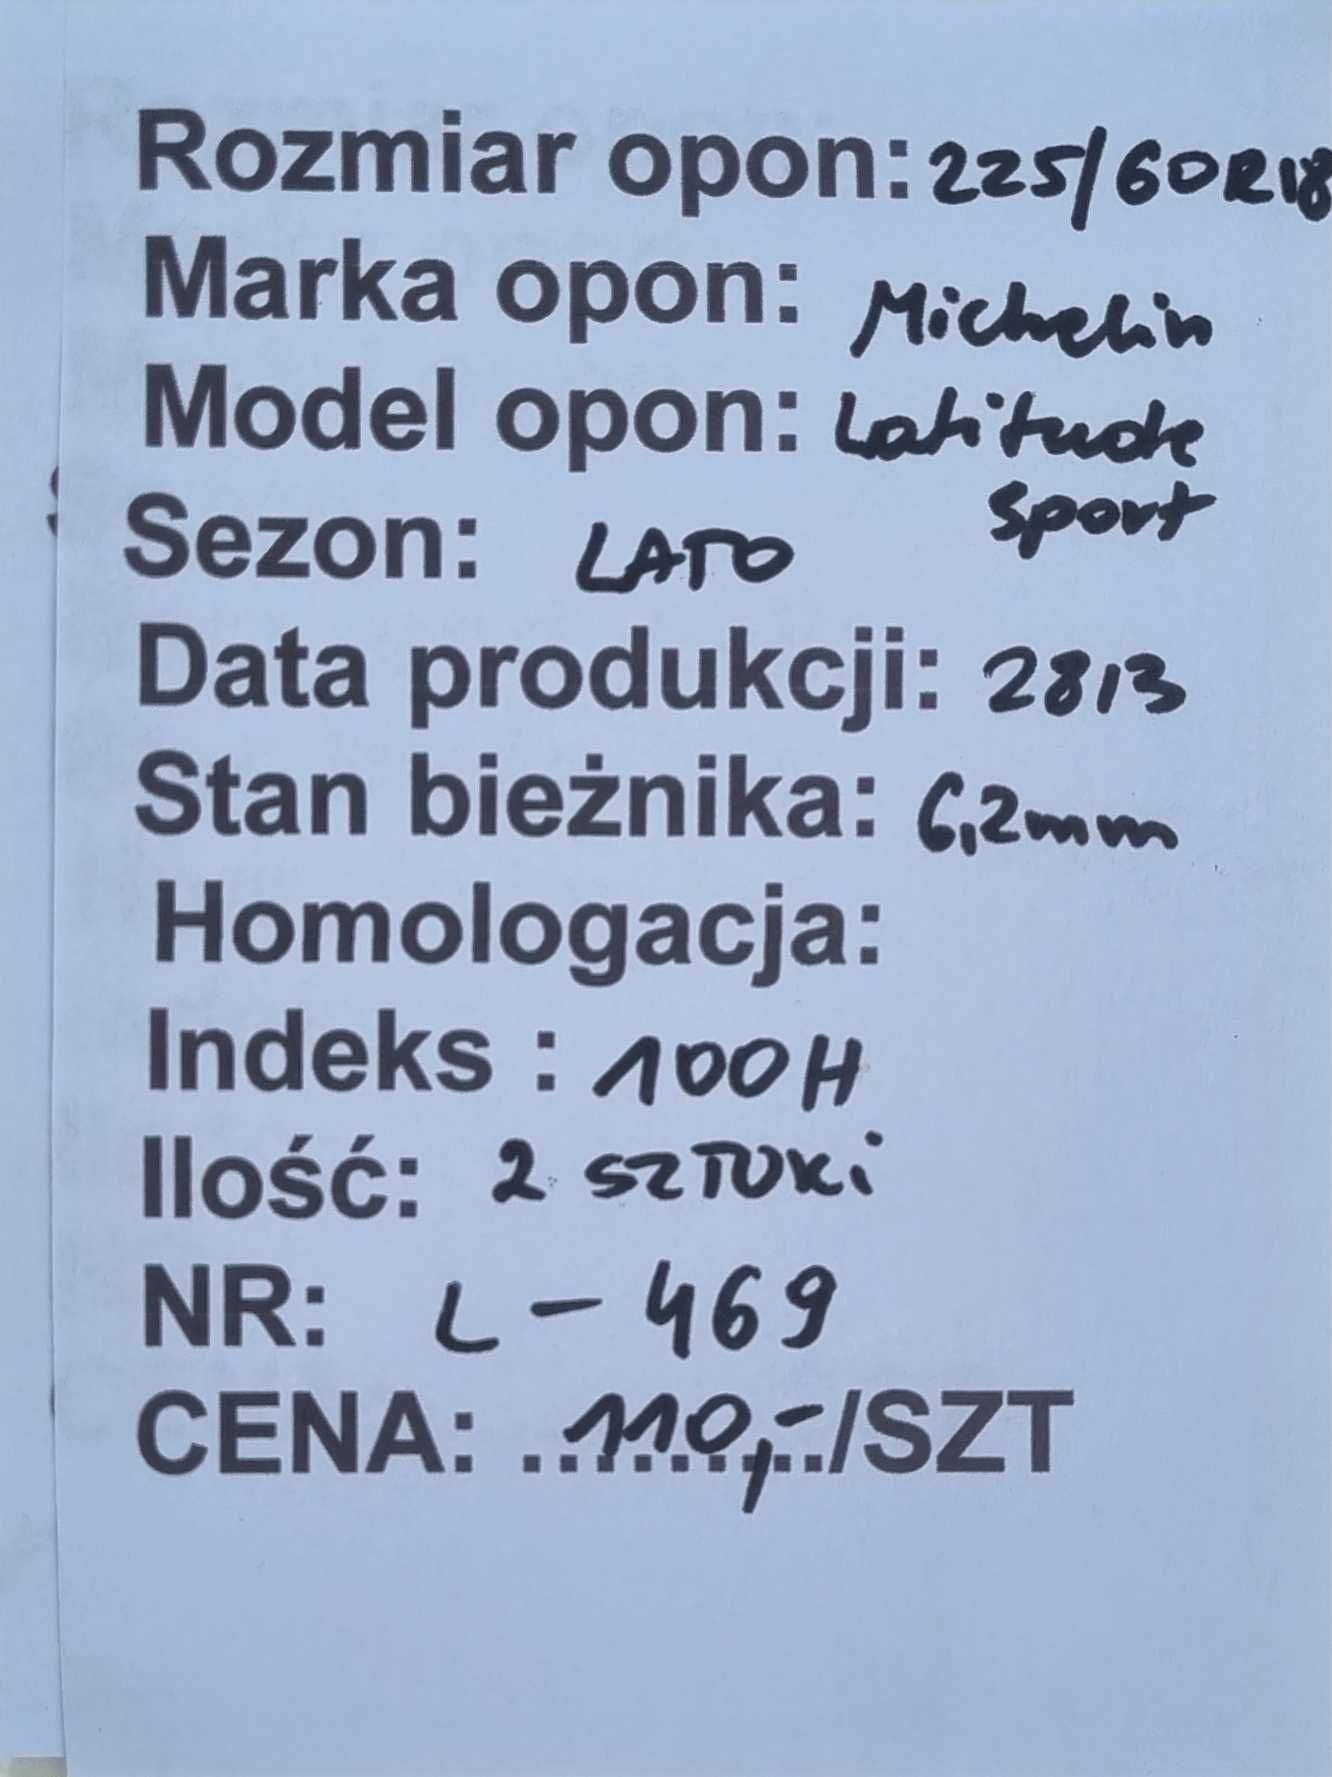 Rozmiar opon: 225/60R18
Marka opon: Michelin
Model opon: Latitude
Sport
Sezon: LATO
Data produkcji: 2813
Stan bieżnika: 6,2mm
Homologacja:
Indeks : 100H
Ilość: 2 SZTUKi
NR: L-469
CENA: ..110,-../SZT